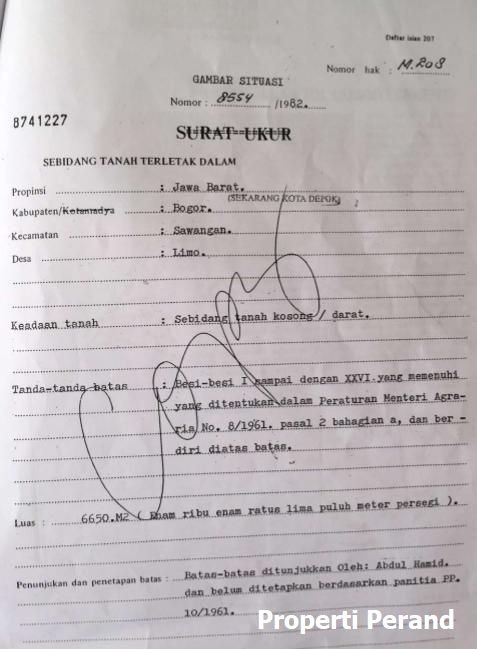 Daftar isian 207
Nomor hak : M.208
GAMBAR SITUASI
Nomor : 8554 /1982.
8741227
SURAT-UKUR
SEBIDANG TANAH TERLETAK DALAM
Propinsi : Jawa Barat.
(SEKARANG KOTA DEPOK)
Kabupaten/Kotamadya : Bogor.
Kecamatan : Sawangan.
Desa : Limo.
Keadaan tanah : Sebidang tanah kosong / darat.
Tanda-tanda batas : Besi-besi I sampai dengan XXVI yang memenuhi
yang ditentukan dalam Peraturan Menteri Agra-
ria No. 8/1961. pasal 2 bahagian a, dan ber -
diri diatas batas.
Luas : 6650.M2 ( Enam ribu enam ratus lima puluh meter persegi ).
Penunjukan dan penetapan batas : Batas-batas ditunjukkan Oleh: Abdul Hamid.
dan belum ditetapkan berdasarkan panitia PP.
10/1961.
Properti Perand